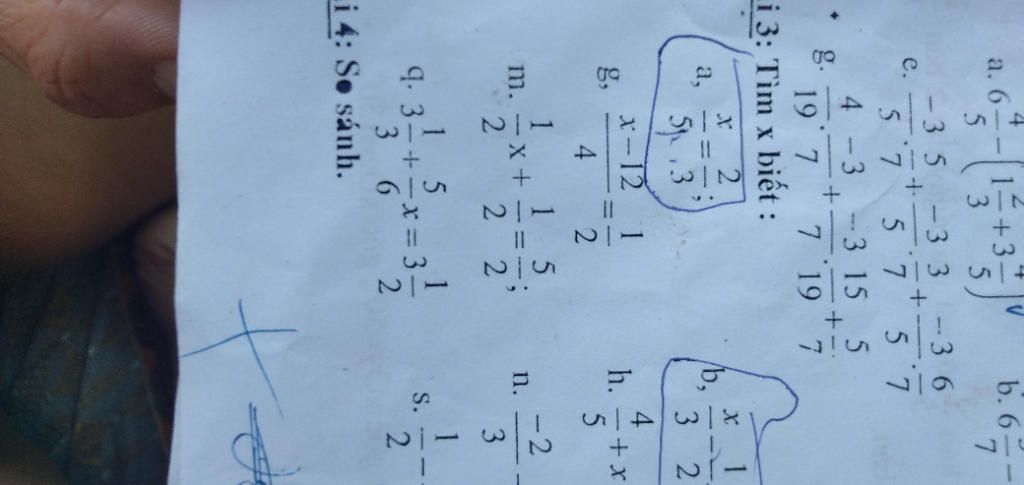 a. 6 4/5 - (1 2/3 + 3 4/5) b. 6
c. -3/5 . 5/7 + -3/5 . 3/7 + -3/5 . 6/7
g. 4/19 . -3/7 + -3/7 . 15/19 + 5/7
i 3: Tìm x biết :
a, x/5 = 2/3; b, x/3 - 1/2
g, x - 12/4 = 1/2 h. 4/5 + x
m. 1/2 x + 1/2 = 5/2; n. -2/3 -
q. 3 1/3 + 5/6 x = 3 1/2 s. 1/2 -
i 4: So sánh.